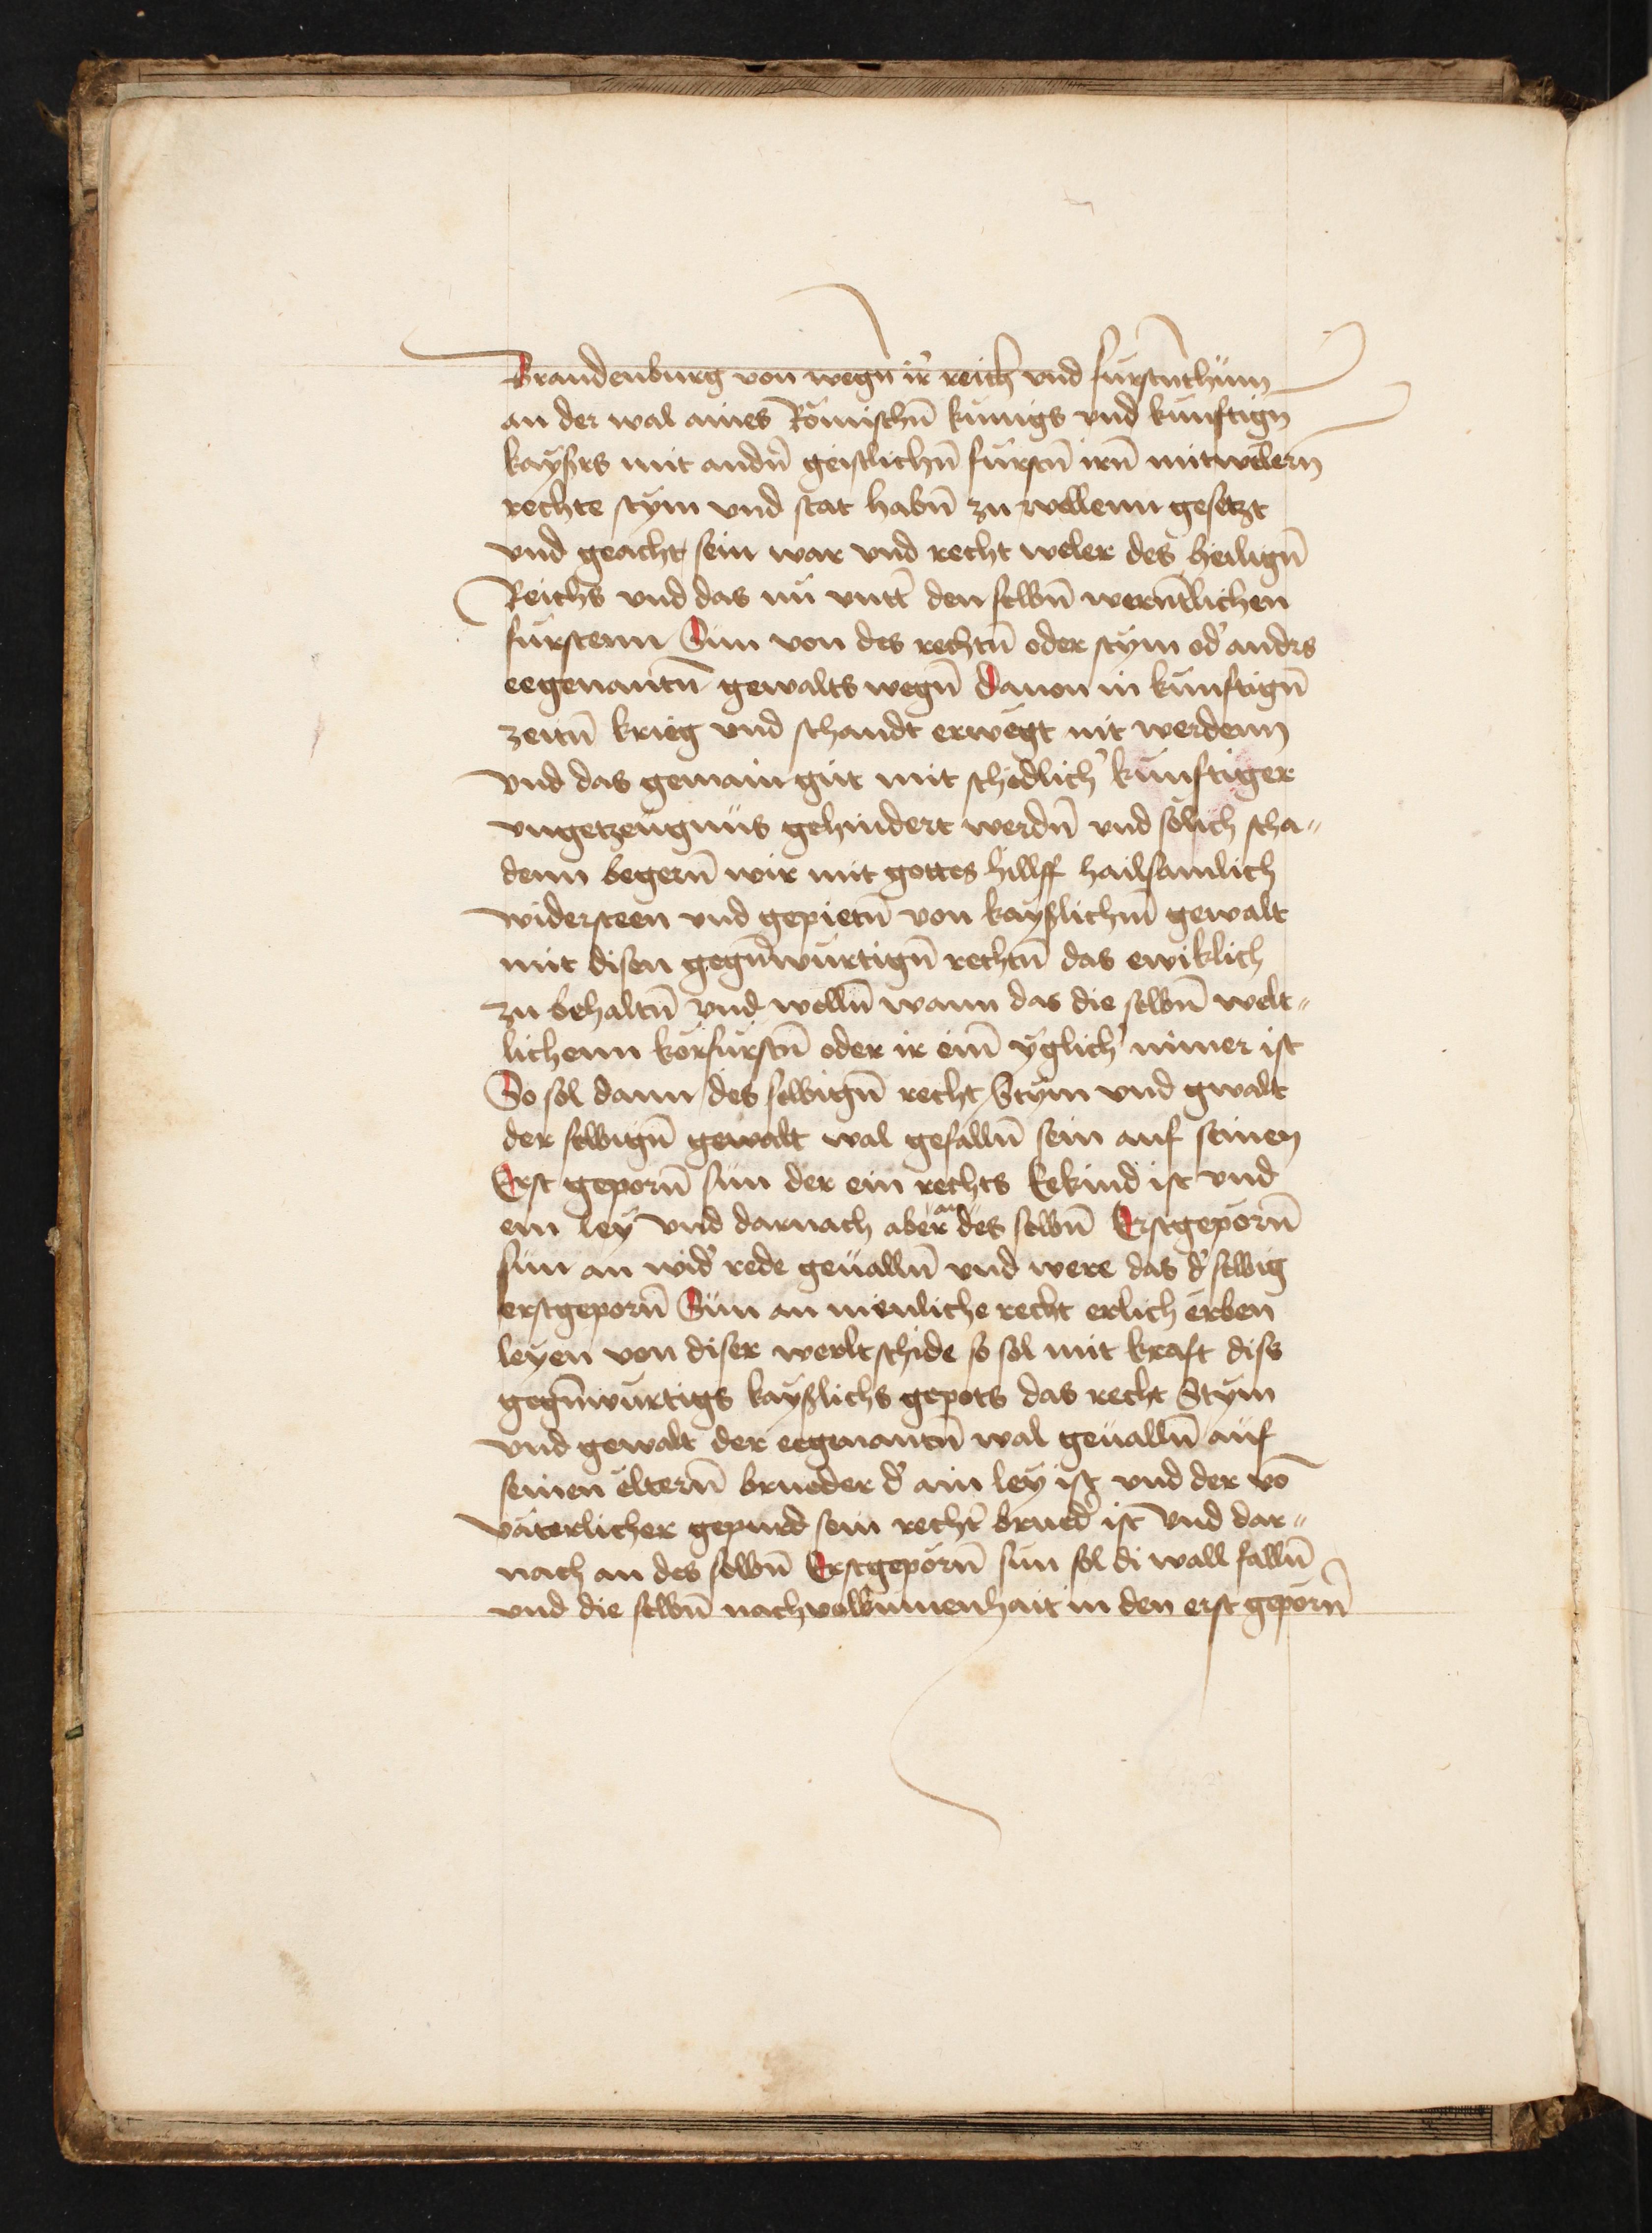 Brandenburg von wegn̄ ir̕ reich vnd fürstnthüm
an der wal aines Römischn̄ kunigs vnd kunftign̄
kayßrs mit andn̄ geistlichn̄ fürstn̄ irn̄ mitwelern
rechte stÿm vnd stat habn̄ zu wellenn gesetzt
vnd geacht sein war vnd recht weler des heiligñ
Reichs vnd das nŭ vntt̕ den selbn̄ werntlichen
fürstenn Sun von des rechtn̄ oder stÿm od̕ andrs
eegenantn̄ gewalts wegn̄ dauon in künftign̄
zeitn̄ krieg vnd schandt erwegt nit werdenn
vnd das gemain gut mit schedlich̕ künftiger
vngetzeugnüs gehindert werdn̄ vnd sölich scha„
denn begern̄ wir mit gottes hillff hailsamlich
widersteen vnd gepietn̄ von kayßlichm̄ gewalt
mit disen gegn̄würtign̄ rechtn̄ das ewiklich
zu behaltn̄ vnd welln̄ wann das die selbn̄ welt„
lichenn körfürstn̄ oder ir ein̄ ÿglich̕ nimer ist
So sol dann des selbign̄ recht Stÿm vnd gwalt
der selbign̄ gewalt wal gefalln̄ sein auf seinen
Erst geporn̄ sün der ein rechts Eekind ist vnd
ein leÿ vnd darnach aber an des selbn̄ Erstgeporn̄
sün an wid̕ rede geualln̄ vnd were das d̕ selbig
erstgeporn̄ Sün an menliche recht erlich erben
leyen von diser werlt schide so sol mit kraft diss
gegn̄würtigs kayßlichs gepots das recht Stÿm
vnd gewalt der eegenantn̄ wal geualln̄ auf
seinen eltern̄ brueder d̕ ain leÿ ist vnd der vō
väterlicher gepurd sein recht̕ brued̕ ist vnd dar„
nach an des selbn̄ Erstgeporn̄ sün sol di wall falln̄
vnd die selbn̄ nachvolkumenhait in den erst geporn̄